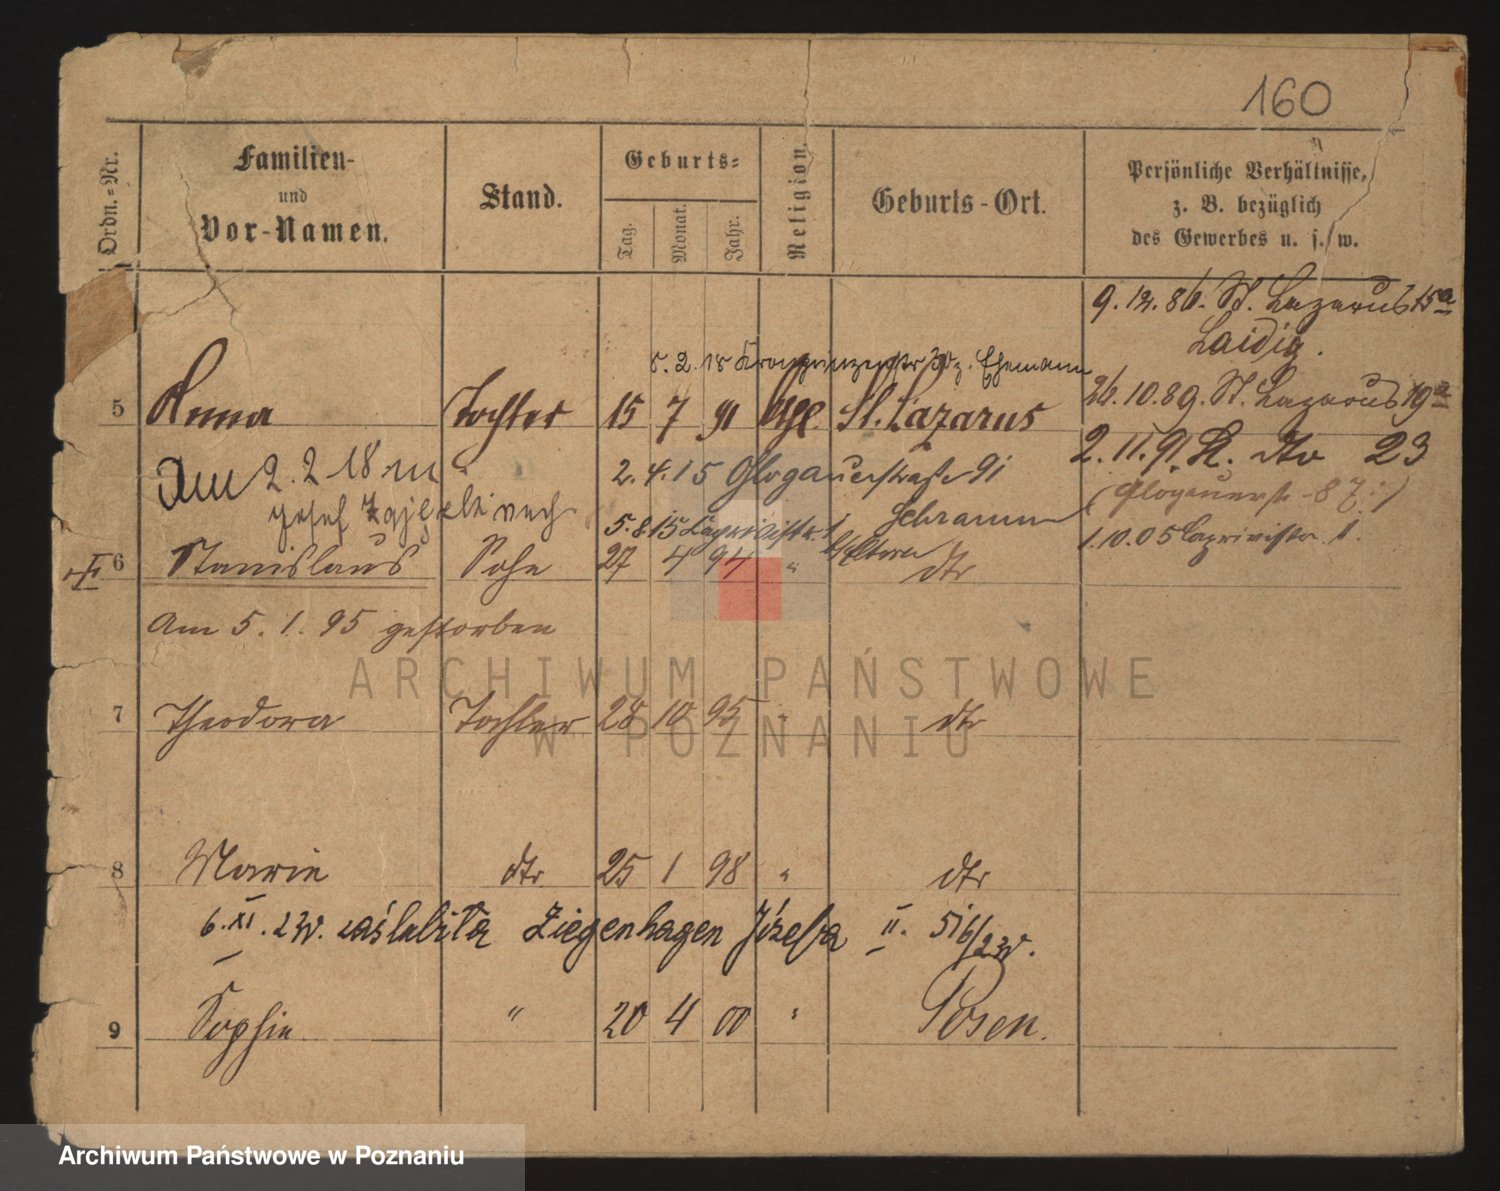 160
Ordn.-Nr.
Familien-
und
Vor-Namen.
Stand.
Geburts-
Tag.
Monat.
Jahr.
Religion.
Geburts-Ort.
Persönliche Verhältnisse,
z. B. bezüglich
des Gewerbes u. s. w.
9.12.86. St. Lazarus 15a
Laidig.
5.2.18 Kronprinzenstr. b. z. Ehemann
26.10.89. St. Lazarus 19a
5 Anna Tochter 15 7 91 St. Lazarus
2.11.91. dto 23
Am 2.2.18 m.
2.4.15 Glogauerstraße 91
(Glogauerstr. 87.)
Josef verh.
5.8.15 Caprivistr. 1 Schramm
z/Eltern
1.10.05 Caprivistr. 1.
6 Stanislaus Sohn 27 4 94 " dto
Am 5.1.95 gestorben
ARCHIWUM PAŃSTWOWE
W POZNANIU
7 Theodora Tochter 28 10 95 " dto
8 Marie dto 25 1 98 " dto
6.XI.23r. zaślubiła Ziegenhagen Józefa II. 516/23r.
9 Sophie " 20 4 00 " Posen.
Archiwum Państwowe w Poznaniu